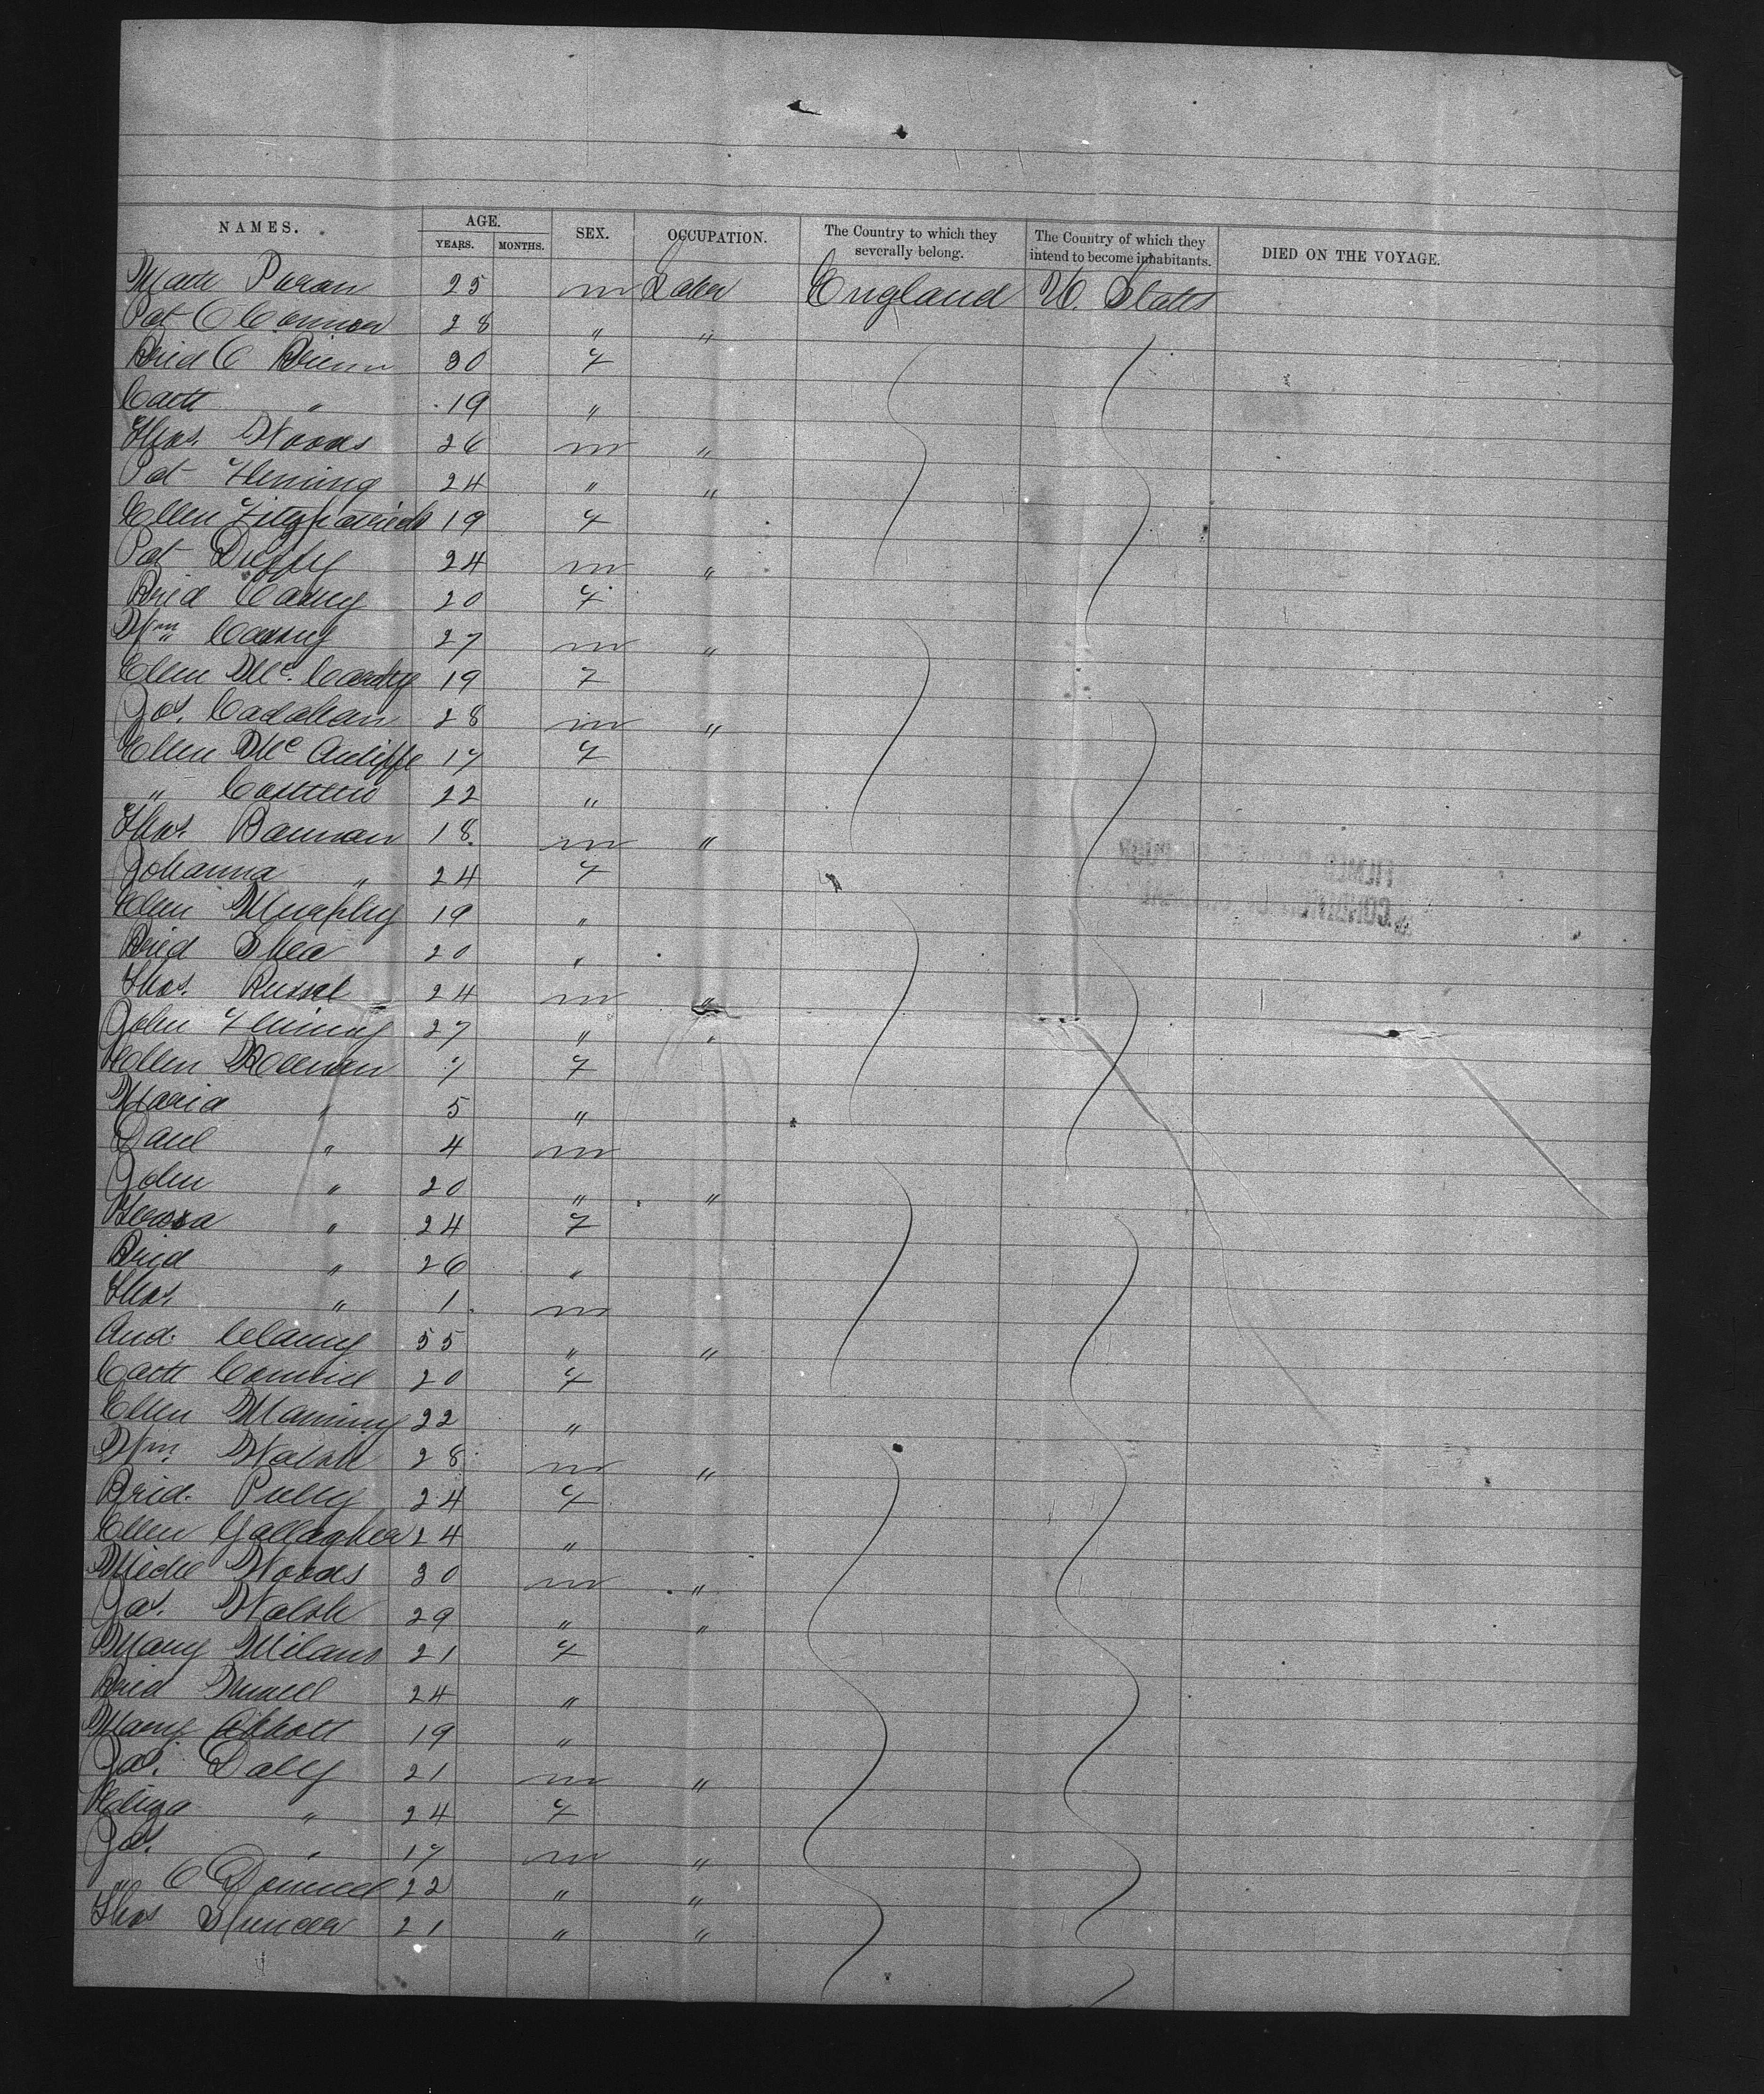 NAMES. AGE. SEX. OCCUPATION. The Country to which they severally belong. The Country of which they intend to become inhabitants. DIED ON THE VOYAGE.
YEARS. MONTHS.
Matt 25 m Labr England U. States
Pat O Connor 28 " "
Brid O Brien 30 f
Cath " 19 "
Thos. Woods 26 m "
Pat Fleming 24 " "
Ellen Fitzpatrick 19 f
Pat Duffy 24 m "
Brid Casey 20 f
Wm Casey 27 m "
Ellen McCarthy 19 f
Jos. Callahan 28 m "
Ellen McAuliffe 17 f
" Costello 22 "
Thos. Bannan 18 m "
Johanna " 24 f
Ellen Murphy 19 "
Brid Shea 20 "
Thos. Russel 24 m "
John Fleming 27 " "
Ellen 7 f
Maria " 5 "
Paul " 4 m
John " 20 " "
Teresa " 24 f
Brid " 26 "
Thos. " 1 m
And. Clancy 55 " "
Cath 20 f
Ellen Manning 22 "
Wm. Walsh 28 m "
Brid. 24 f
Ellen Gallagher 24 "
Mich Woods 30 m "
Jas. Walsh 29 " "
Mary 21 f
Brid 24 "
Mary Abbott 19 "
Jas. Daly 21 m "
Eliza " 24 f
Jas. " 17 m "
" O Donnell 22 " "
Thos Spencer 21 " "